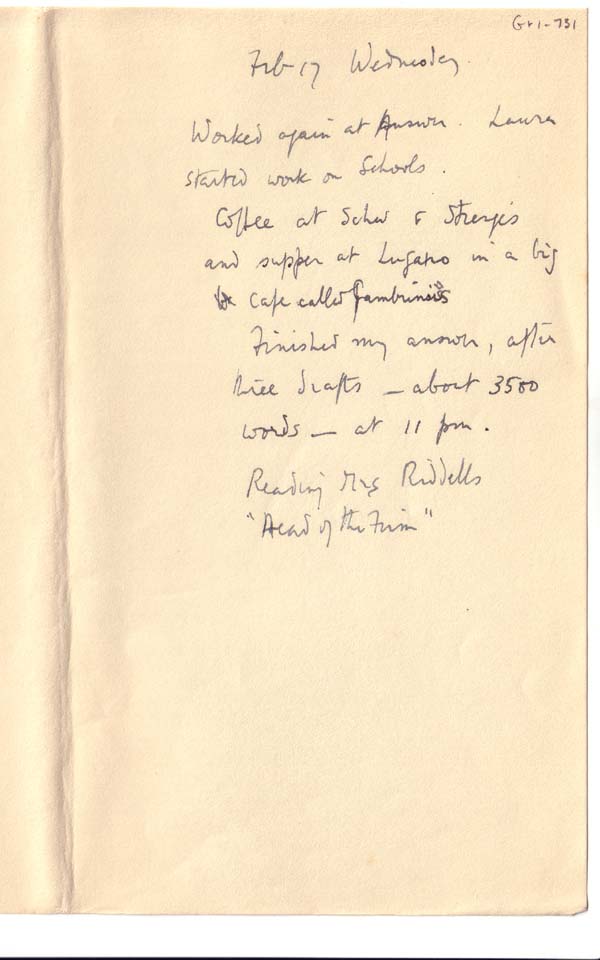 Gr1-731
Feb 17 Wednesday.
Worked again at Answer. Laura
started work on Schools.
Coffee at Schu & Sturzis
and supper at Lugano in a big
cafe called Gambrinus
Finished my answer, after
three drafts — about 3500
words — at 11 pm.
Reading Mrs Riddells
"Head of the Firm"